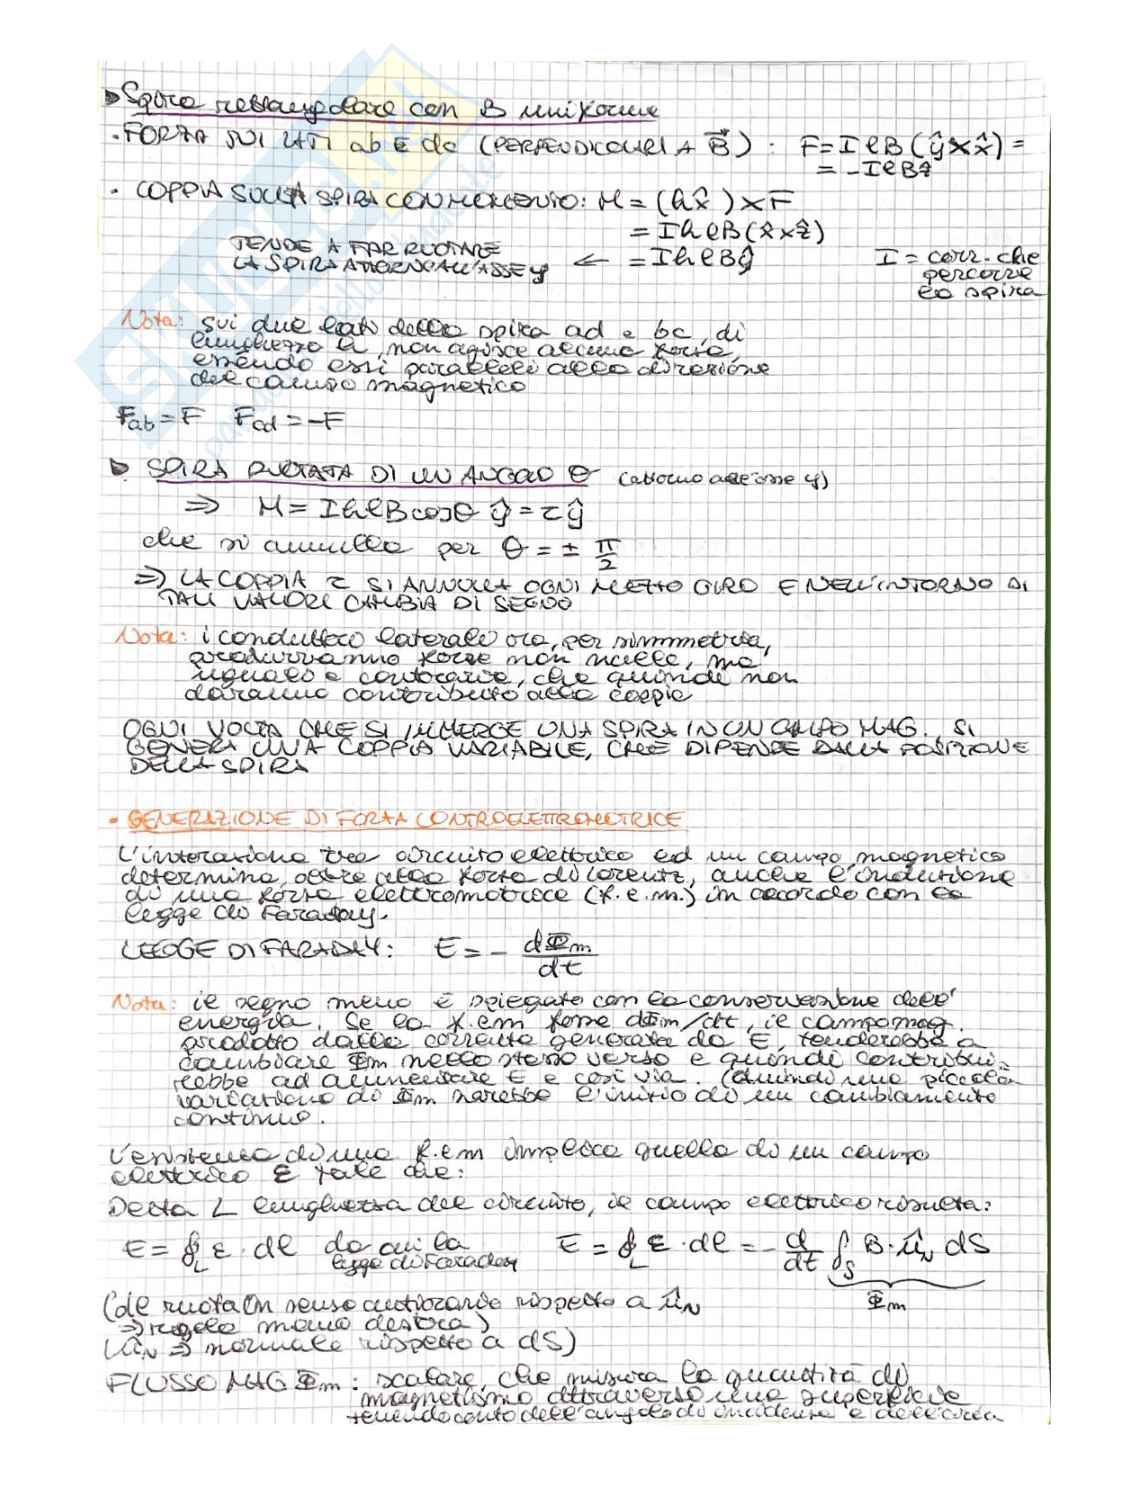 Spira rettangolare con B uniforme
• FORZA SUI LATI ab E dc (PERPENDICOLARI A B⃗): F = IℓB(ŷ×x̂) =
= -IℓBẑ
• COPPIA SULLA SPIRA CON MOMENTO: M = (hx̂) × F
= IhℓB(x̂×ẑ)
TENDE A FAR RUOTARE ← = IhℓBŷ I = corr. che
LA SPIRA ATTORNO ALL'ASSE y percorre
la spira
Nota: sui due lati della spira ad e bc, di
lunghezza h, non agisce alcuna forza,
essendo essi paralleli alla direzione
del campo magnetico
Fab = F Fcd = -F
SPIRA RUOTATA DI UN ANGOLO θ (attorno all'asse y)
⇒ M = IhℓBcosθ ŷ = τŷ
che si annulla per θ = ± π/2
⇒ LA COPPIA τ SI ANNULLA OGNI MEZZO GIRO E NELL'INTORNO DI
TALI VALORI CAMBIA DI SEGNO
Nota: i conduttori laterali ora, per simmetria,
produrranno forze non nulle, ma
uguali e contrarie, che quindi non
daranno contributo alla coppia
OGNI VOLTA CHE SI IMMERGE UNA SPIRA IN UN CAMPO MAG. SI
GENERA UNA COPPIA VARIABILE, CHE DIPENDE DALLA POSIZIONE
DELLA SPIRA
• GENERAZIONE DI FORZA CONTROELETTROMOTRICE
L'interazione tra circuito elettrico ed un campo magnetico
determina, oltre alla forza di Lorentz, anche l'induzione
di una forza elettromotrice (f.e.m.) in accordo con la
legge di Faraday.
LEGGE DI FARADAY: E = - dΦm/dt
Nota: il segno meno è spiegato con la conservazione dell'
energia. Se la f.em fosse dΦm/dt, il campo mag.
prodotto dalla corrente generata da E, tenderebbe a
cambiare Φm nello stesso verso e quindi contribui-
rebbe ad aumentare E e così via. (Quindi una piccola
variazione di Φm sarebbe l'inizio di un cambiamento
continuo.
L'esistenza di una f.em implica quella di un campo
elettrico ε tale che:
Detta L lunghezza del circuito, il campo elettrico risulta:
E = ∮L ε · dl da cui la E = ∮L ε · dl = - d/dt ∫S B · ûN dS
legge di Faraday
Φm
(dl ruota in senso antiorario rispetto a ûN
⇒ regola mano destra)
(ûN ⇒ normale rispetto a dS)
FLUSSO MAG Φm: scalare, che misura la quantità di
magnetismo attraverso una superficie
tenendo conto dell'angolo di incidenza e dell'area